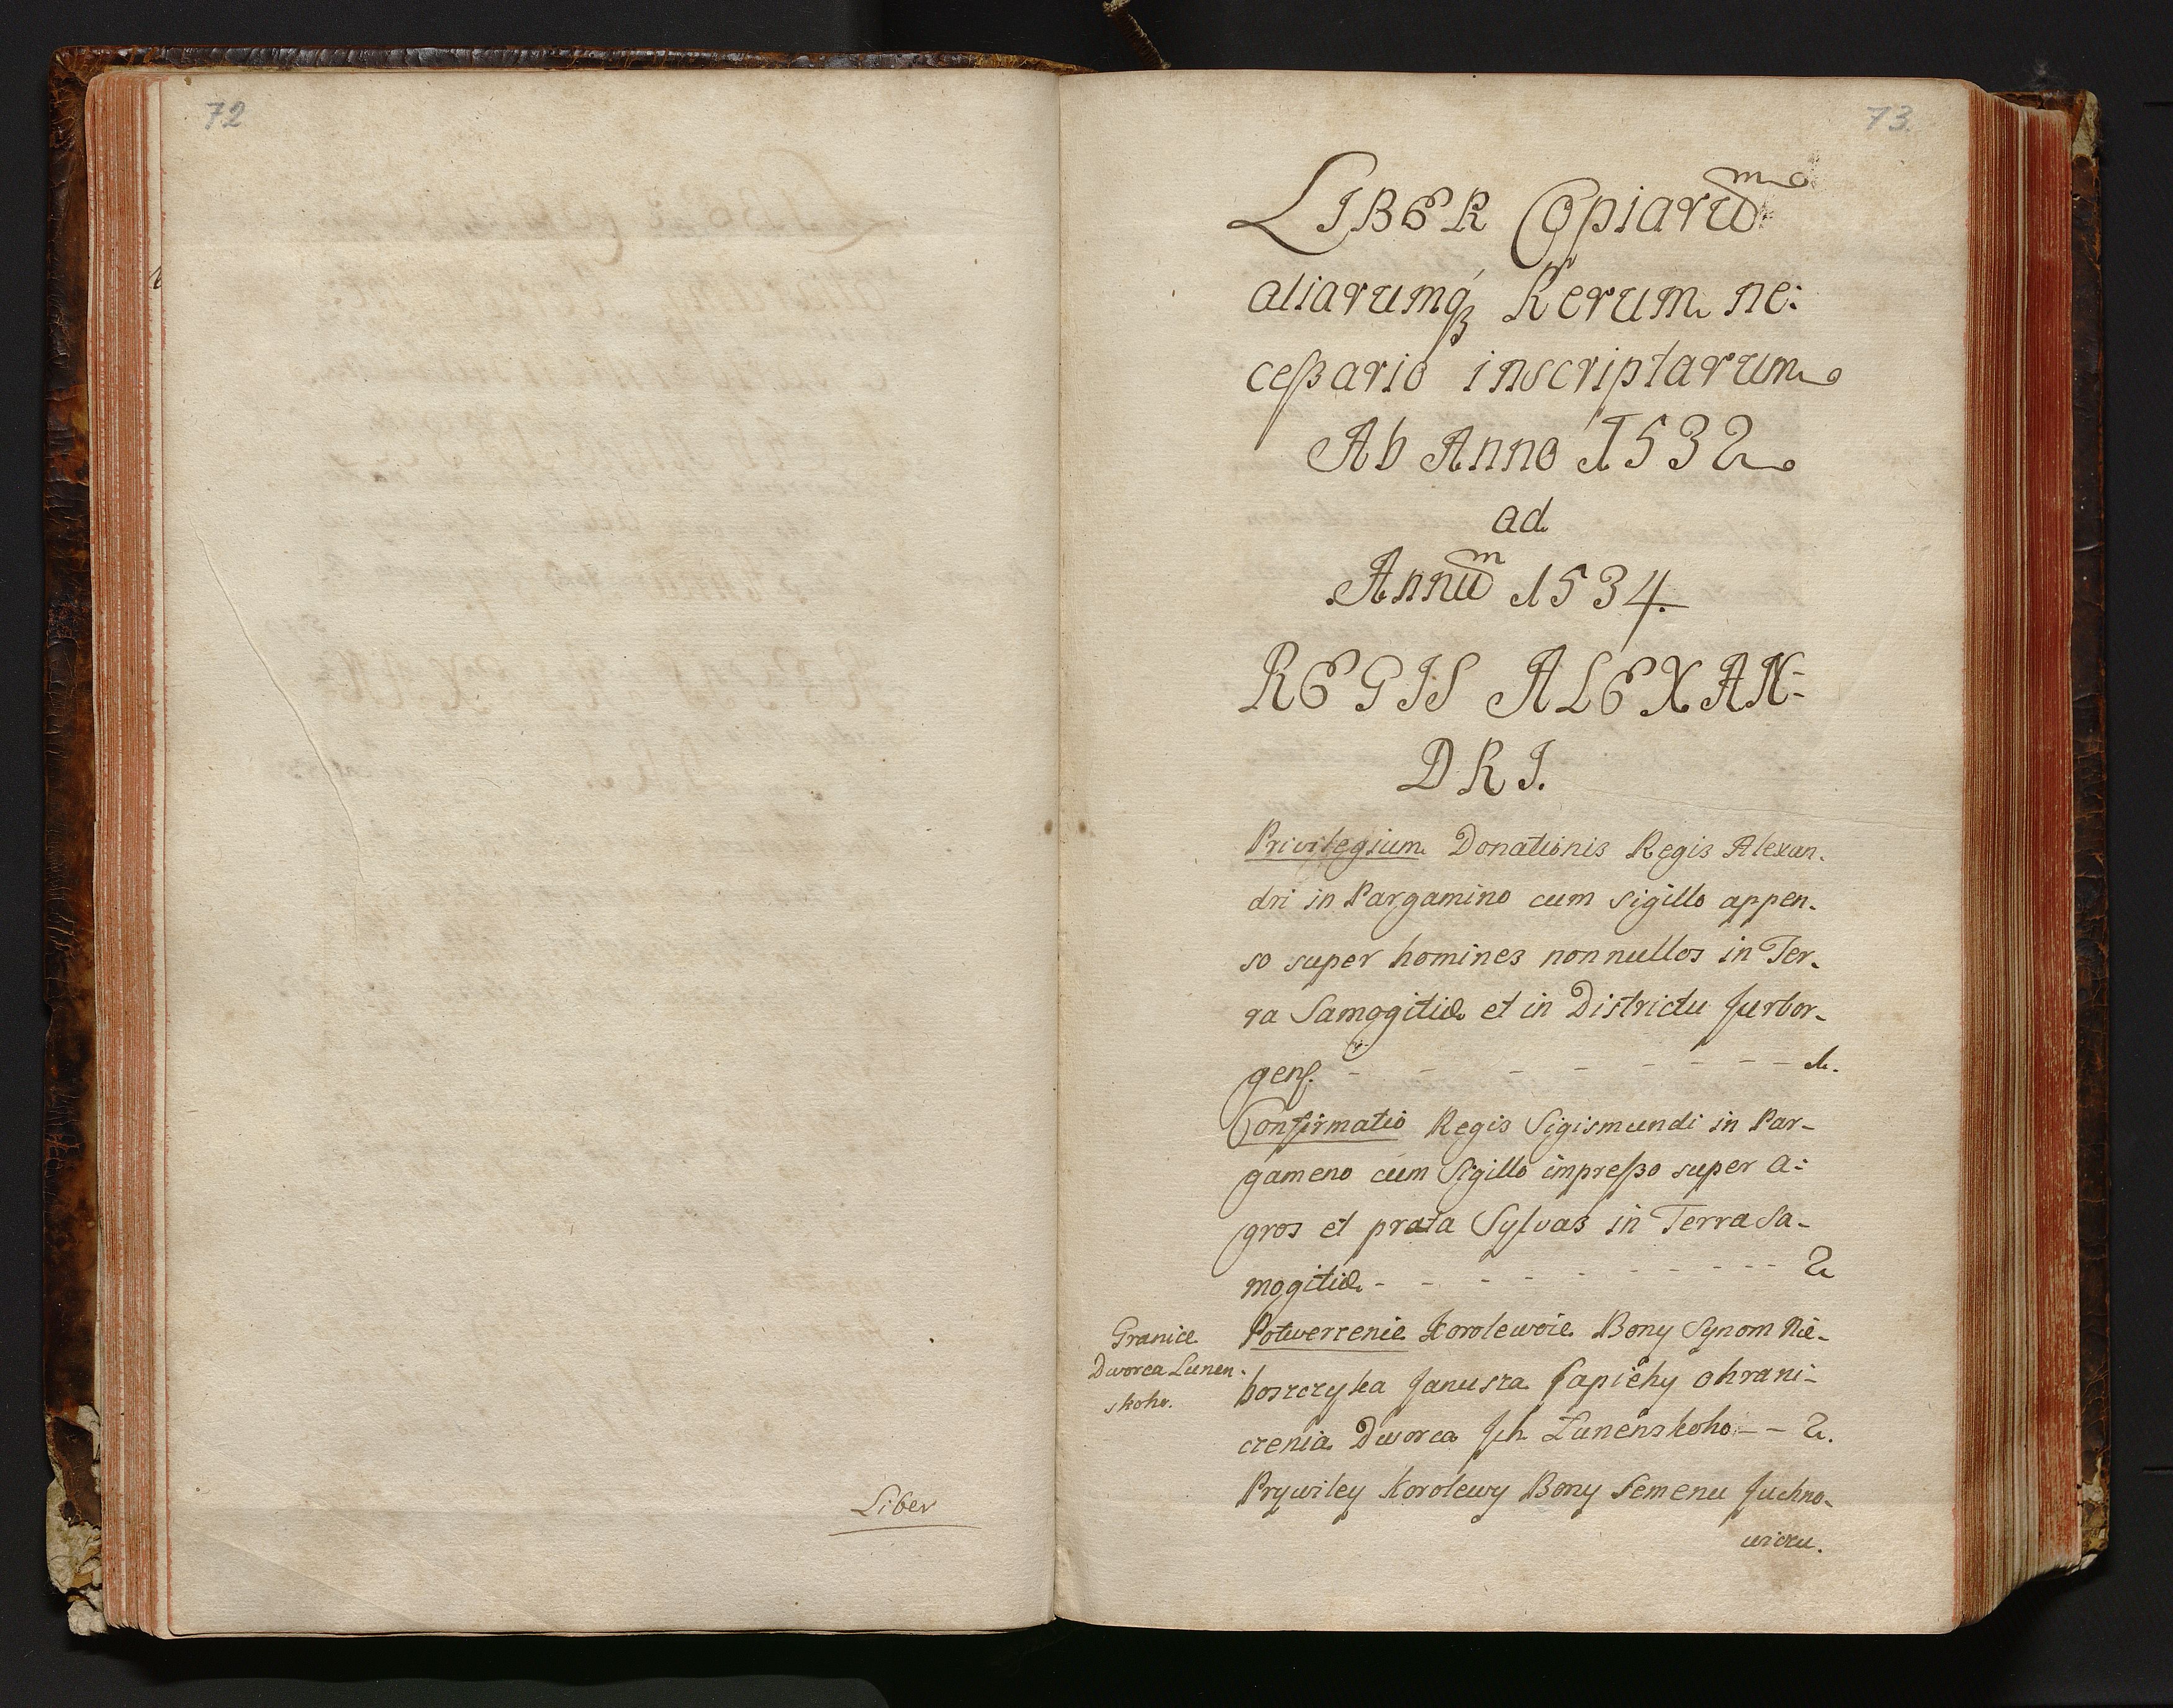 72
Liber
73.
LIBER Copiarum
aliarumq́ꝫ Rerum ne:
ceßario inscriptarum
Ab Anno 1532
ad
Annum 1534.
REGIS ALEXAN:
DRI.
Privilegium Donationis Regis Alexan-
dri in Pargamino cum sigillo appen-
so super homines nonnullos in Ter-
ra Samogitiæ et in Districtu Jurbor-
gens. - - - - - - - - 1.
Confirmatio Regis Sigismundi in Par-
gameno cum Sigillo impreßo super a:
gros et prata Sylvas in Terra Sa-
mogitiæ - - - - - - - - - - 2
Granice
Dworca Lunen-
skoho.
Potwerżenie Korolewoie Bony Synom Nie-
boszczyka Janusza Sapiehy ohrani-
czenia Dworca Jch Łunenskoho - - 2.
Prywiley Korolewy Bony Semenu Juchno-
wiczu.